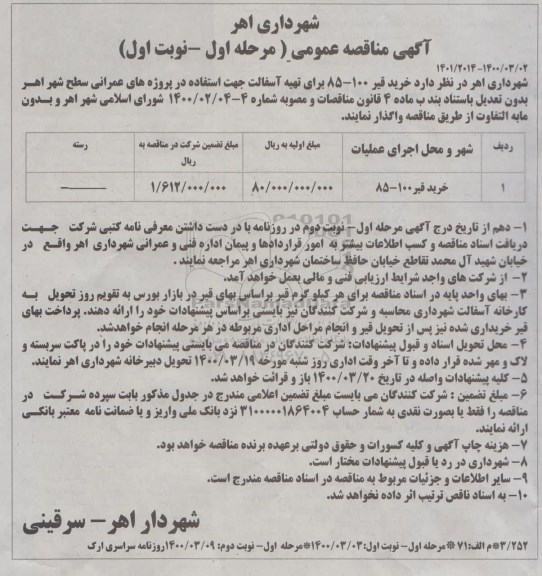 شهرداری اهر
آگهی مناقصه عمومی ( مرحله اول -نوبت اول)
۱۴۰۱/۲۰۱۴-۱۴۰۰/۰۳/۰۲
شهرداری اهر در نظر دارد خرید قیر ۱۰۰-۸۵ برای تهیه آسفالت جهت استفاده در پروژه های عمرانی سطح شهر اهر
بدون تعدیل باستناد بند ب ماده ۴ قانون مناقصات و مصوبه شماره ۴-۱۴۰۰/۰۲/۰۴ شورای اسلامی شهر اهر و بدون
مابه التفاوت از طریق مناقصه واگذار نمایند.
ردیف شهر و محل اجرای عملیات مبلغ اولیه به ریال مبلغ تضمین شرکت در مناقصه به ریال رسته
۱ خرید قیر۱۰۰-۸۵ ۸۰/۰۰۰/۰۰۰/۰۰۰ ۱/۶۱۲/۰۰۰/۰۰۰ ———
۱- دهم از تاریخ درج آگهی مرحله اول- نوبت دوم در روزنامه با در دست داشتن معرفی نامه کتبی شرکت جهت
دریافت اسناد مناقصه و کسب اطلاعات بیشتر به امور قراردادها و پیمان اداره فنی و عمرانی شهرداری اهر واقع در
خیابان شهید آل محمد تقاطع خیابان حافظ ساختمان شهرداری اهر مراجعه نمایند .
۲- از شرکت های واجد شرایط ارزیابی فنی و مالی بعمل خواهد آمد.
۳- بهای واحد پایه در اسناد مناقصه برای هر کیلو گرم قیر براساس بهای قیر در بازار بورس به تقویم روز تحویل به
کارخانه آسفالت شهرداری محاسبه و شرکت کنندگان نیز بایستی براساس پیشنهادات خود را ارائه دهند. پرداخت بهای
قیر خریداری شده نیز پس از تحویل قیر و انجام مراحل اداری مربوطه در هر مرحله انجام خواهدشد.
۴- محل تحویل اسناد و قبول پیشنهادات: شرکت کنندگان در مناقصه می بایستی پیشنهادات خود را در پاکت سربسته و
لاک و مهر شده قرار داده و تا آخر وقت اداری روز شنبه مورخه ۱۴۰۰/۰۳/۱۹ تحویل دبیرخانه شهرداری اهر نمایند.
۵- کلیه پیشنهادات واصله در تاریخ ۱۴۰۰/۰۳/۲۰ باز و قرائت خواهد شد.
۶- مبلغ تضمین : شرکت کنندگان می بایست مبلغ تضمین اعلامی مندرج در جدول مذکور بابت سپرده شرکت در
مناقصه را فقط یا بصورت نقدی به شمار حساب ۳۱۰۰۰۰۱۸۶۴۰۰۴ نزد بانک ملی واریز و یا ضمانت نامه معتبر بانکی
ارائه نمایند.
۷- هزینه چاپ آگهی و کلیه کسورات و حقوق دولتی برعهده برنده مناقصه خواهد بود.
۸- شهرداری در رد یا قبول پیشنهادات مختار است.
۹- سایر اطلاعات و جزئیات مربوط به مناقصه در اسناد مناقصه مندرج است.
۱۰- به اسناد ناقص ترتیب اثر داده نخواهد شد.
شهردار اهر- سرقینی
۳/۲۵۲*م الف:۷۱*مرحله اول- نوبت اول:۱۴۰۰/۰۳/۰۳*مرحله اول- نوبت دوم: ۱۴۰۰/۰۳/۰۹روزنامه سراسری ارک